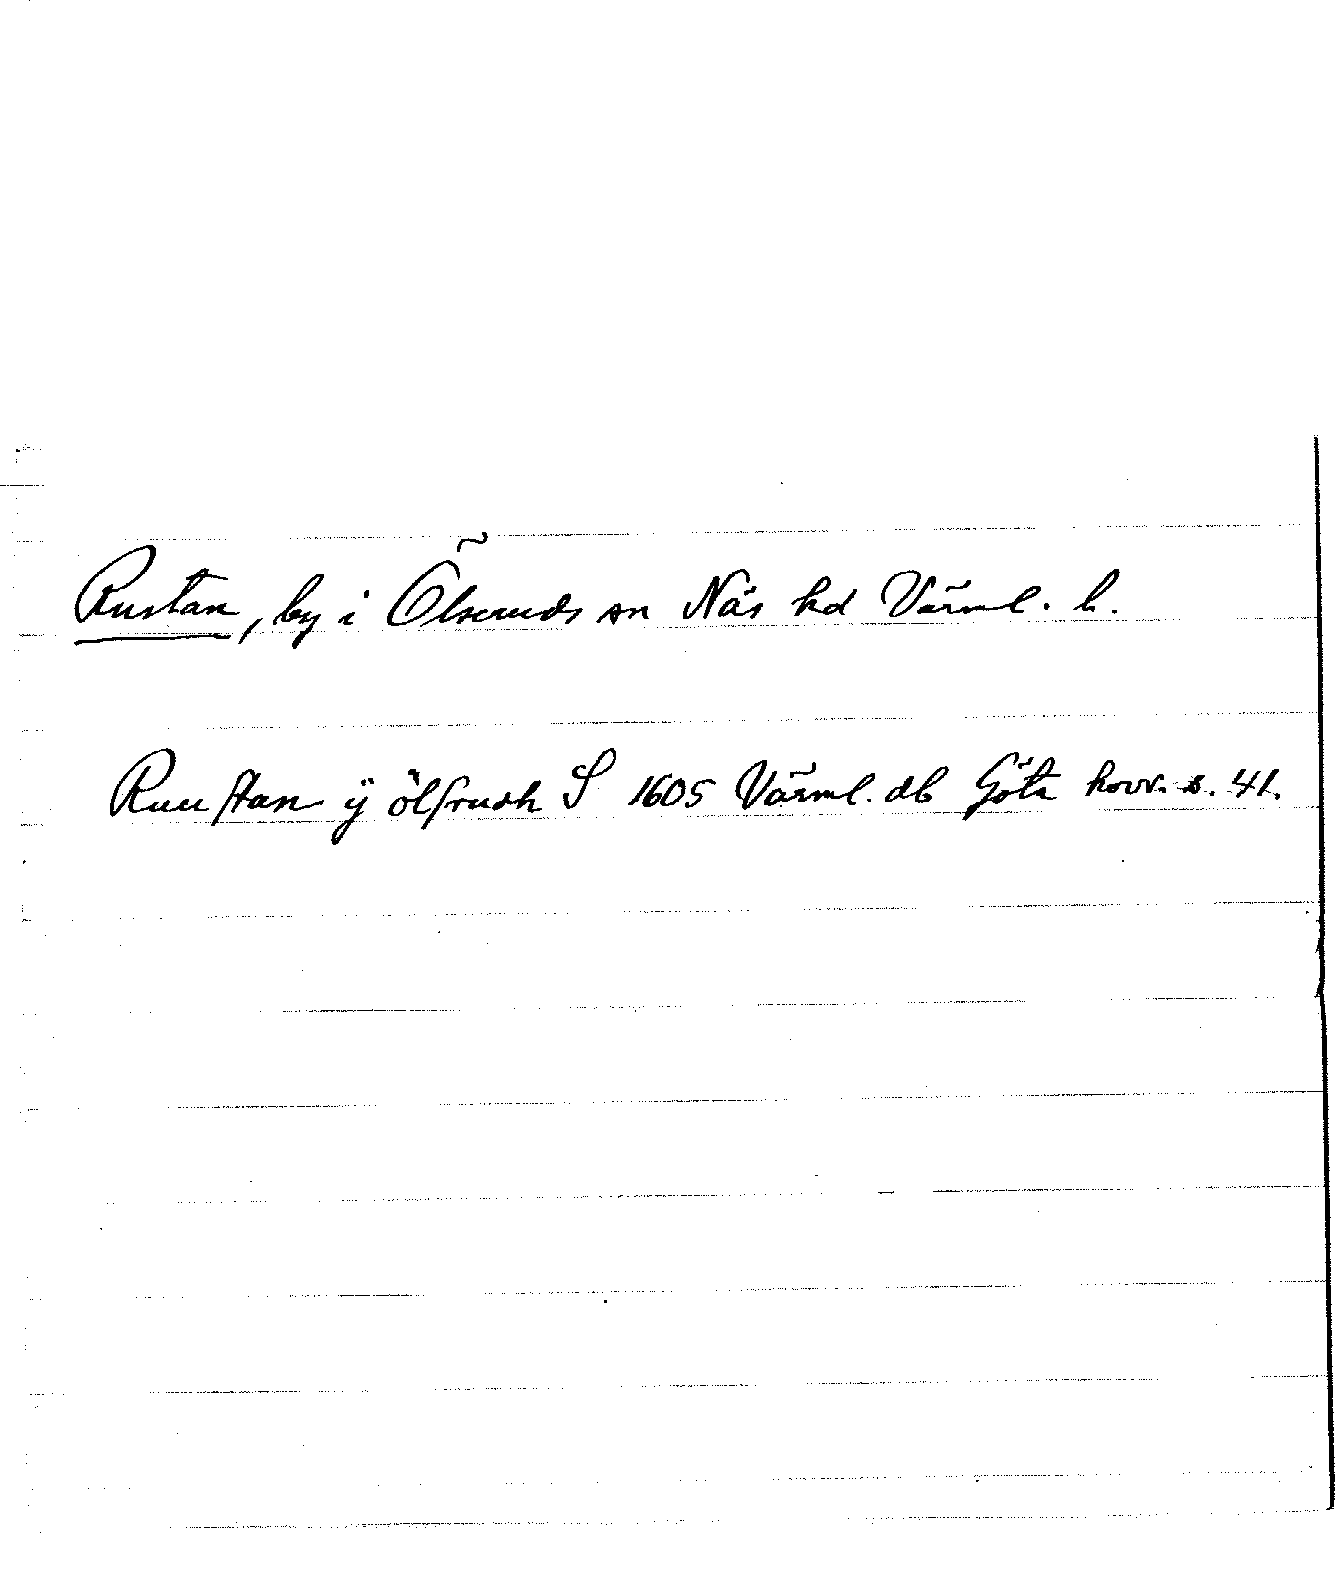 Rustan, by i Ölseruds sn Näs hd Värml. l.
Ruustan ÿ ölsrudh S 1605 Värml. db Göta hovr. s. 41.